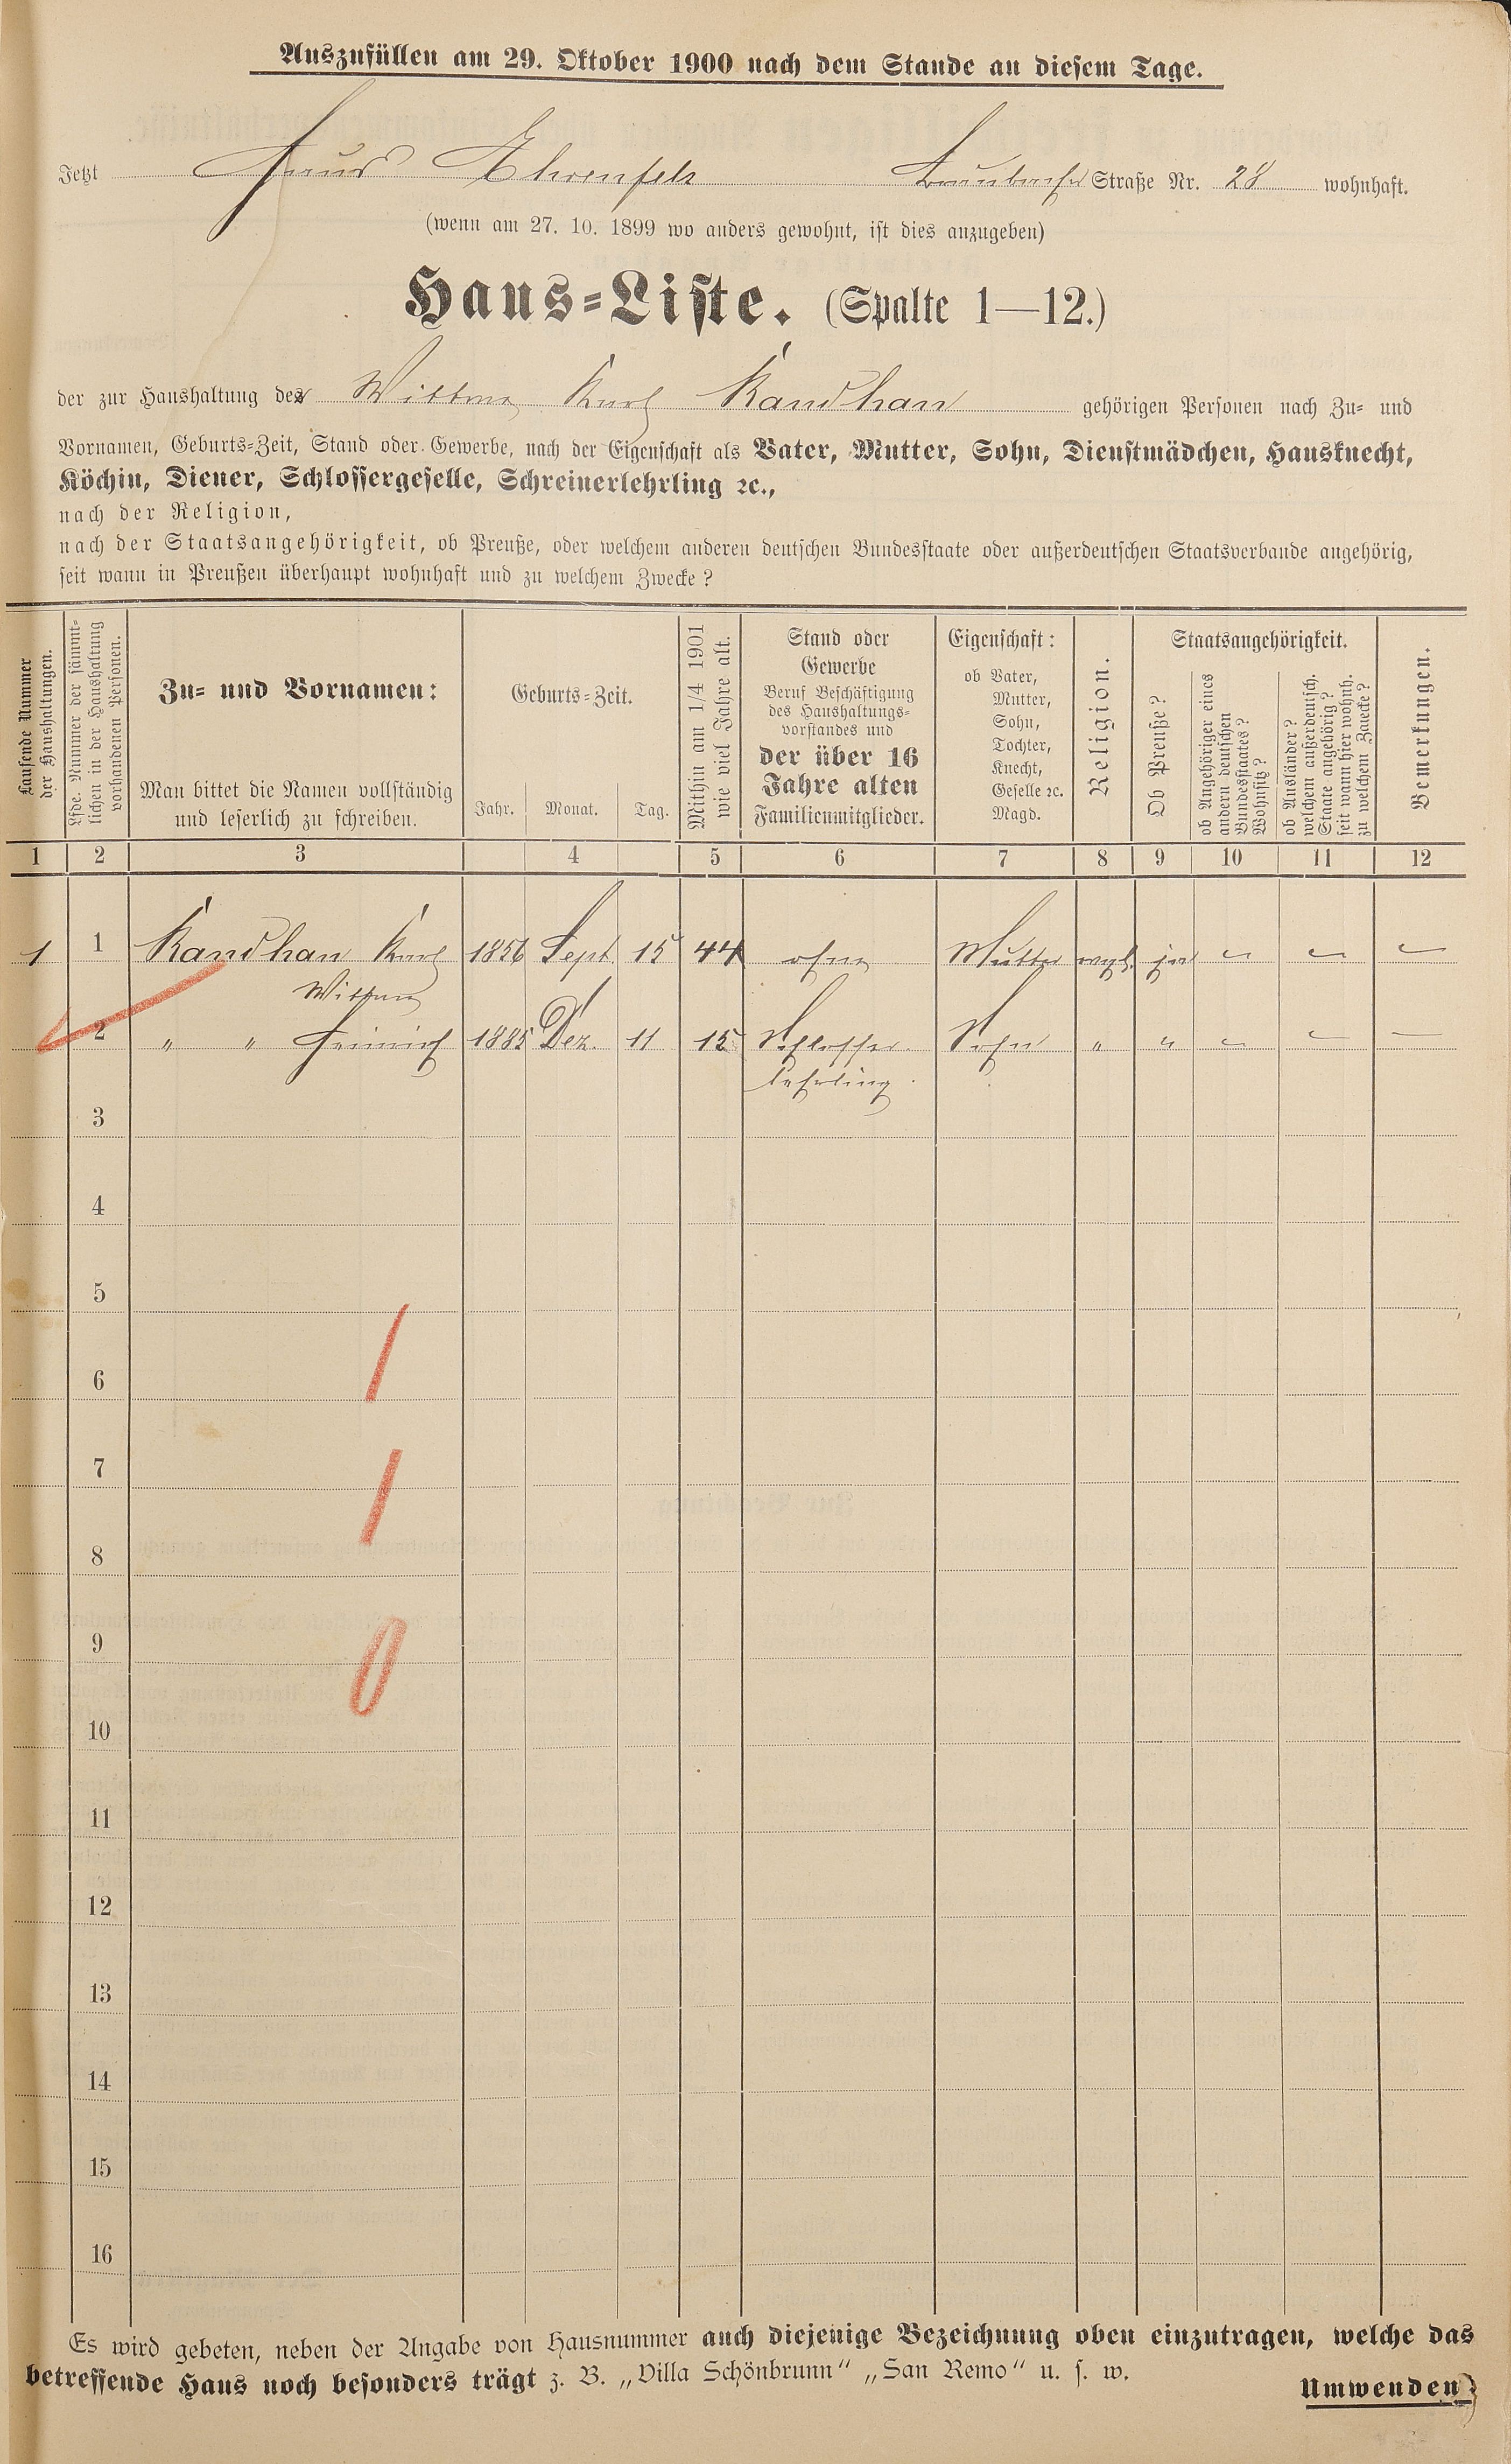 Auszufüllen am 29. Oktober 1900 nach dem Stande an diesem Tage.
Jetzt Haus Ehrenfels Straße Nr. 28 wohnhaft.
(wenn am 27. 10. 1899 wo anders gewohnt, ist dies anzugeben)
Haus-Liste. (Spalte 1—12.)
der zur Haushaltung der Wittwe Karl Kandhan gehörigen Personen nach Zu- und
Vornamen, Geburts-Zeit, Stand oder Gewerbe, nach der Eigenschaft als Vater, Mutter, Sohn, Dienstmädchen, Hausknecht,
Köchin, Diener, Schlossergeselle, Schreinerlehrling ꝛc.,
nach der Religion,
nach der Staatsangehörigkeit, ob Preuße, oder welchem anderen deutschen Bundesstaate oder außerdeutschen Staatsverbande angehörig,
seit wann in Preußen überhaupt wohnhaft und zu welchem Zwecke?
Laufende Nummer
der Haushaltungen.
Lfde. Nummer der sämmt-
lichen in der Haushaltung
vorhandenen Personen.
Zu- und Vornamen:
Man bittet die Namen vollständig
und leserlich zu schreiben.
Geburts-Zeit.
Jahr. Monat. Tag.
Mithin am 1/4 1901
wie viel Jahre alt.
Stand oder
Gewerbe
Beruf Beschäftigung
des Haushaltungs-
vorstandes und
der über 16
Jahre alten
Familienmitglieder.
Eigenschaft:
ob Vater,
Mutter,
Sohn,
Tochter,
Knecht,
Geselle ꝛc.
Magd.
Religion.
Staatsangehörigkeit.
Ob Preuße?
ob Angehöriger eines
andern deutschen
Bundesstaates?
Wohnsitz?
ob Ausländer?
welchem außerdeutsch.
Staate angehörig?
seit wann hier wohnh.
zu welchem Zwecke?
Bemerkungen.
1 2 3 4 5 6 7 8 9 10 11 12
1 1 Kandhan Karl 1856 Sept. 15 44 ohne Mutter evgl. ja – – –
Wittwe
2 " " Heinrich 1885 Dez. 11 15 Schlosser Sohn " " – – –
lehrling
3
4
5
6
7
8
9
10
11
12
13
14
15
16
1
1
0
Es wird gebeten, neben der Angabe von Hausnummer auch diejenige Bezeichnung oben einzutragen, welche das
betreffende Haus noch besonders trägt z. B. „Villa Schönbrunn“ „San Remo“ u. s. w.
Umwenden